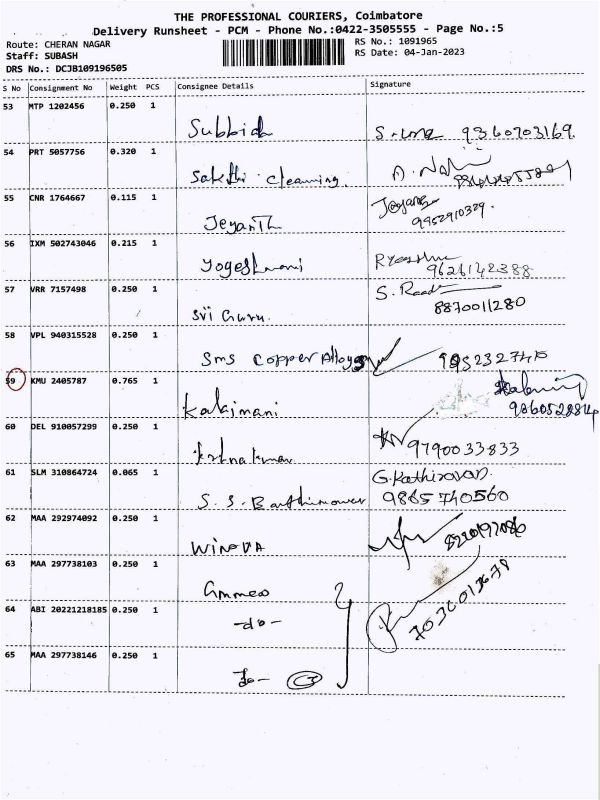 THE PROFESSIONAL COURIERS, Coimbatore
Delivery Runsheet - PCM - Phone No.:0422-3505555 - Page No.:5
Route: CHERAN NAGAR
RS No.: 1091965
Staff: SUBASH
RS Date: 04-Jan-2023
DRS No.: DCJB109196505
S No Consignment No Weight PCS Consignee Details Signature
53 MTP 1202456 0.250 1
9360703169.
54 PRT 5057756 0.320 1
Sakthi cleaning.
55 CNR 1764667 0.115 1
Jeyanth 9952910329.
56 IXM 502743046 0.215 1
Yogeshwani 9626142388
57 VRR 7157498 0.250 1
Sri Guru. 8870011280
58 VPL 940315528 0.250 1
Sms Copper Alloys
59 KMU 2405787 0.765 1
Kalaimani
60 DEL 910057299 0.250 1
9790033833
61 SLM 310864724 0.065 1
G.Kathiravan.
S. S. 9865740560
62 MAA 292974092 0.250 1
WINOVA
63 MAA 297738103 0.250 1
Ammeo
64 ABI 20221218185 0.250 1
-do-
65 MAA 297738146 0.250 1
-do- 3